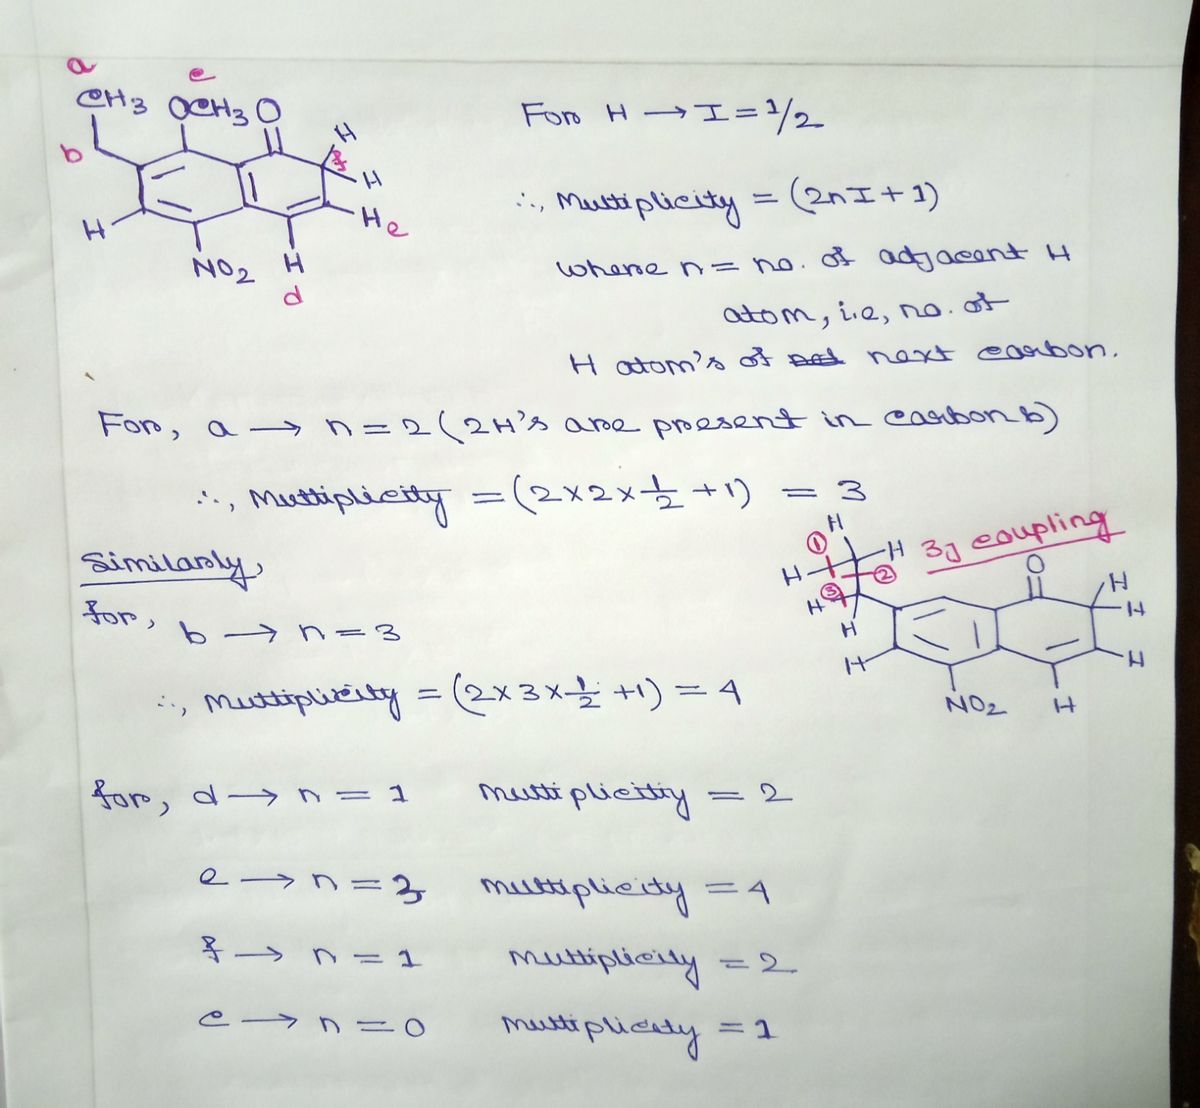 a
e
CH3 OCH3 O
H
b
f
H
H
He
NO2 H
d
For H → I = 1/2
∴, Multiplicity = (2nI + 1)
where n = no. of adjacent H
atom, i.e, no. of
H atom's of next carbon.
For, a → n = 2 (2H's are present in carbon b)
∴, Multiplicity = (2×2×1/2 + 1) = 3
Similarly,
for, b → n = 3
∴, Multiplicity = (2×3×1/2 + 1) = 4
3J coupling
H
① H
H ②
H ③
H
H
O
H
H
H
NO2 H
for, d → n = 1 multiplicity = 2
e → n = 3 multiplicity = 4
f → n = 1 multiplicity = 2
c → n = 0 multiplicity = 1